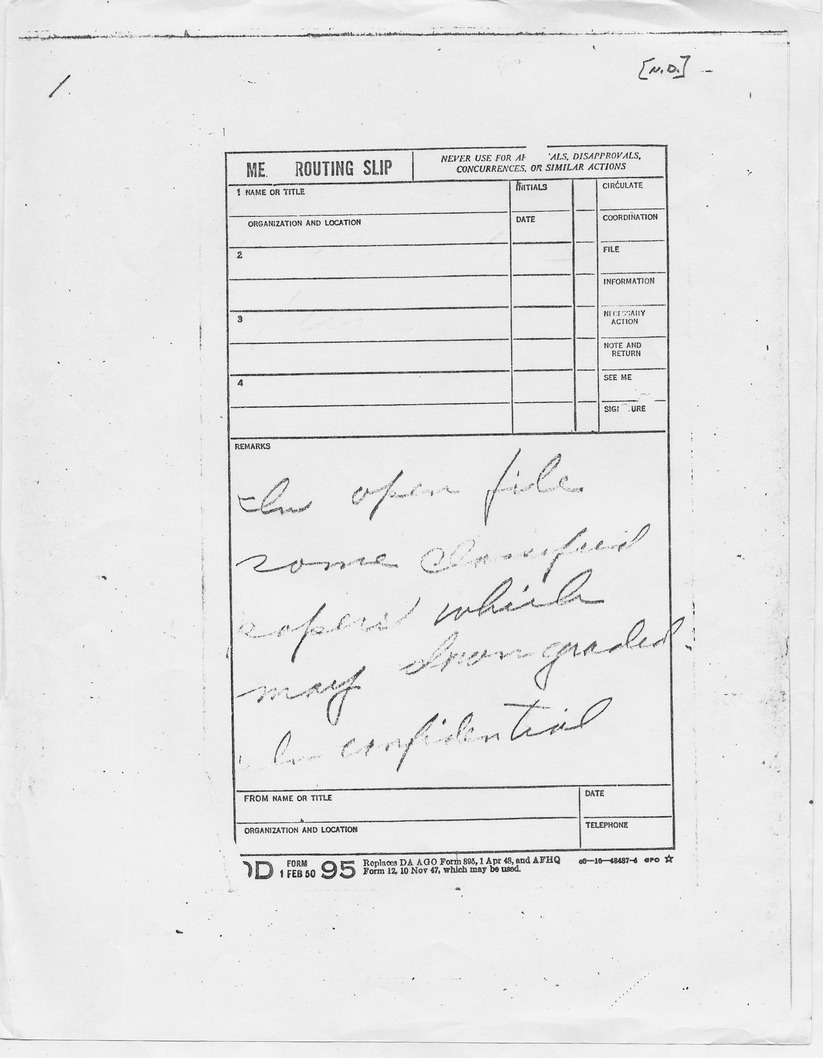 [N.D.] –
/
ME. ROUTING SLIP
NEVER USE FOR AP 'ALS, DISAPPROVALS,
CONCURRENCES, OR SIMILAR ACTIONS
1 NAME OR TITLE
INITIALS
CIRCULATE
ORGANIZATION AND LOCATION
DATE
COORDINATION
2
FILE
INFORMATION
3
NECESSARY
ACTION
NOTE AND
RETURN
4
SEE ME
SIG URE
REMARKS
In open file
some classified
papers which
may downgraded
In confidential
FROM NAME OR TITLE
DATE
ORGANIZATION AND LOCATION
TELEPHONE
DD FORM 1 FEB 50 95
Replaces DA AGO Form 895, 1 Apr 48, and AFHQ
Form 12, 10 Nov 47, which may be used.
c6—16—48487-4 GPO